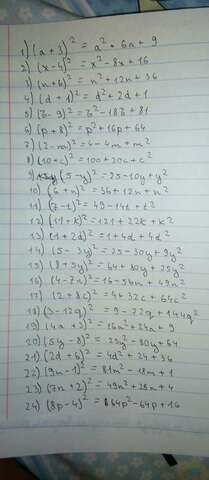 1) (a + 3)² = a² + 6a + 9
2) (x - 4)² = x² - 8x + 16
3) (n + 6)² = n² + 12n + 36
4) (d + 1)² = d² + 2d + 1
5) (b - 9)² = b² - 18b + 81
6) (p + 8)² = p² + 16p + 64
7) (2 - m)² = 4 - 4m + m²
8) (10 + c)² = 100 + 20c + c²
9) (5 - y)² = 25 - 10y + y²
10) (6 + n)² = 36 + 12n + n²
11) (7 - t)² = 49 - 14t + t²
12) (11 + k)² = 121 + 22k + k²
13) (1 + 2d)² = 1 + 4d + 4d²
14) (5 - 3y)² = 25 - 30y + 9y²
15) (8 + 5y)² = 64 + 80y + 25y²
16) (4 - 7x)² = 16 - 56x + 49x²
17) (2 + 8c)² = 4 + 32c + 64c²
18) (3 - 12q)² = 9 - 72q + 144q²
19) (4a + 3)² = 16a² + 24a + 9
20) (5y - 8)² = 25y² - 80y + 64
21) (2d + 6)² = 4d² + 24 + 36
22) (9n - 1)² = 81n² - 18n + 1
23) (7n + 2)² = 49n² + 28n + 4
24) (8p - 4)² = 64p² - 64p + 16